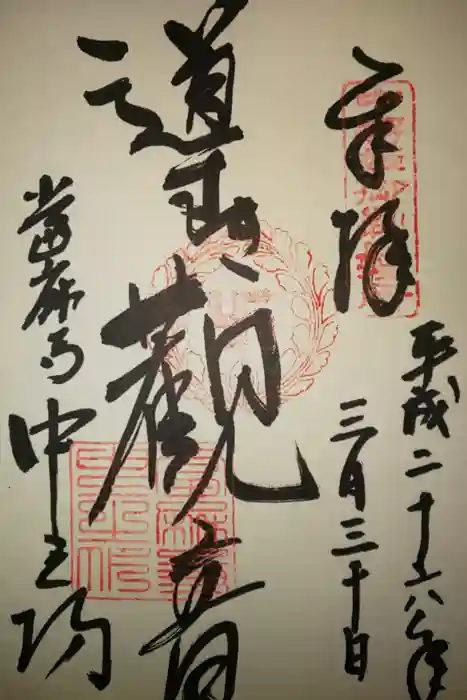 奉拝
平成二十六年
三月三十日
導き觀音
當麻寺
中之坊